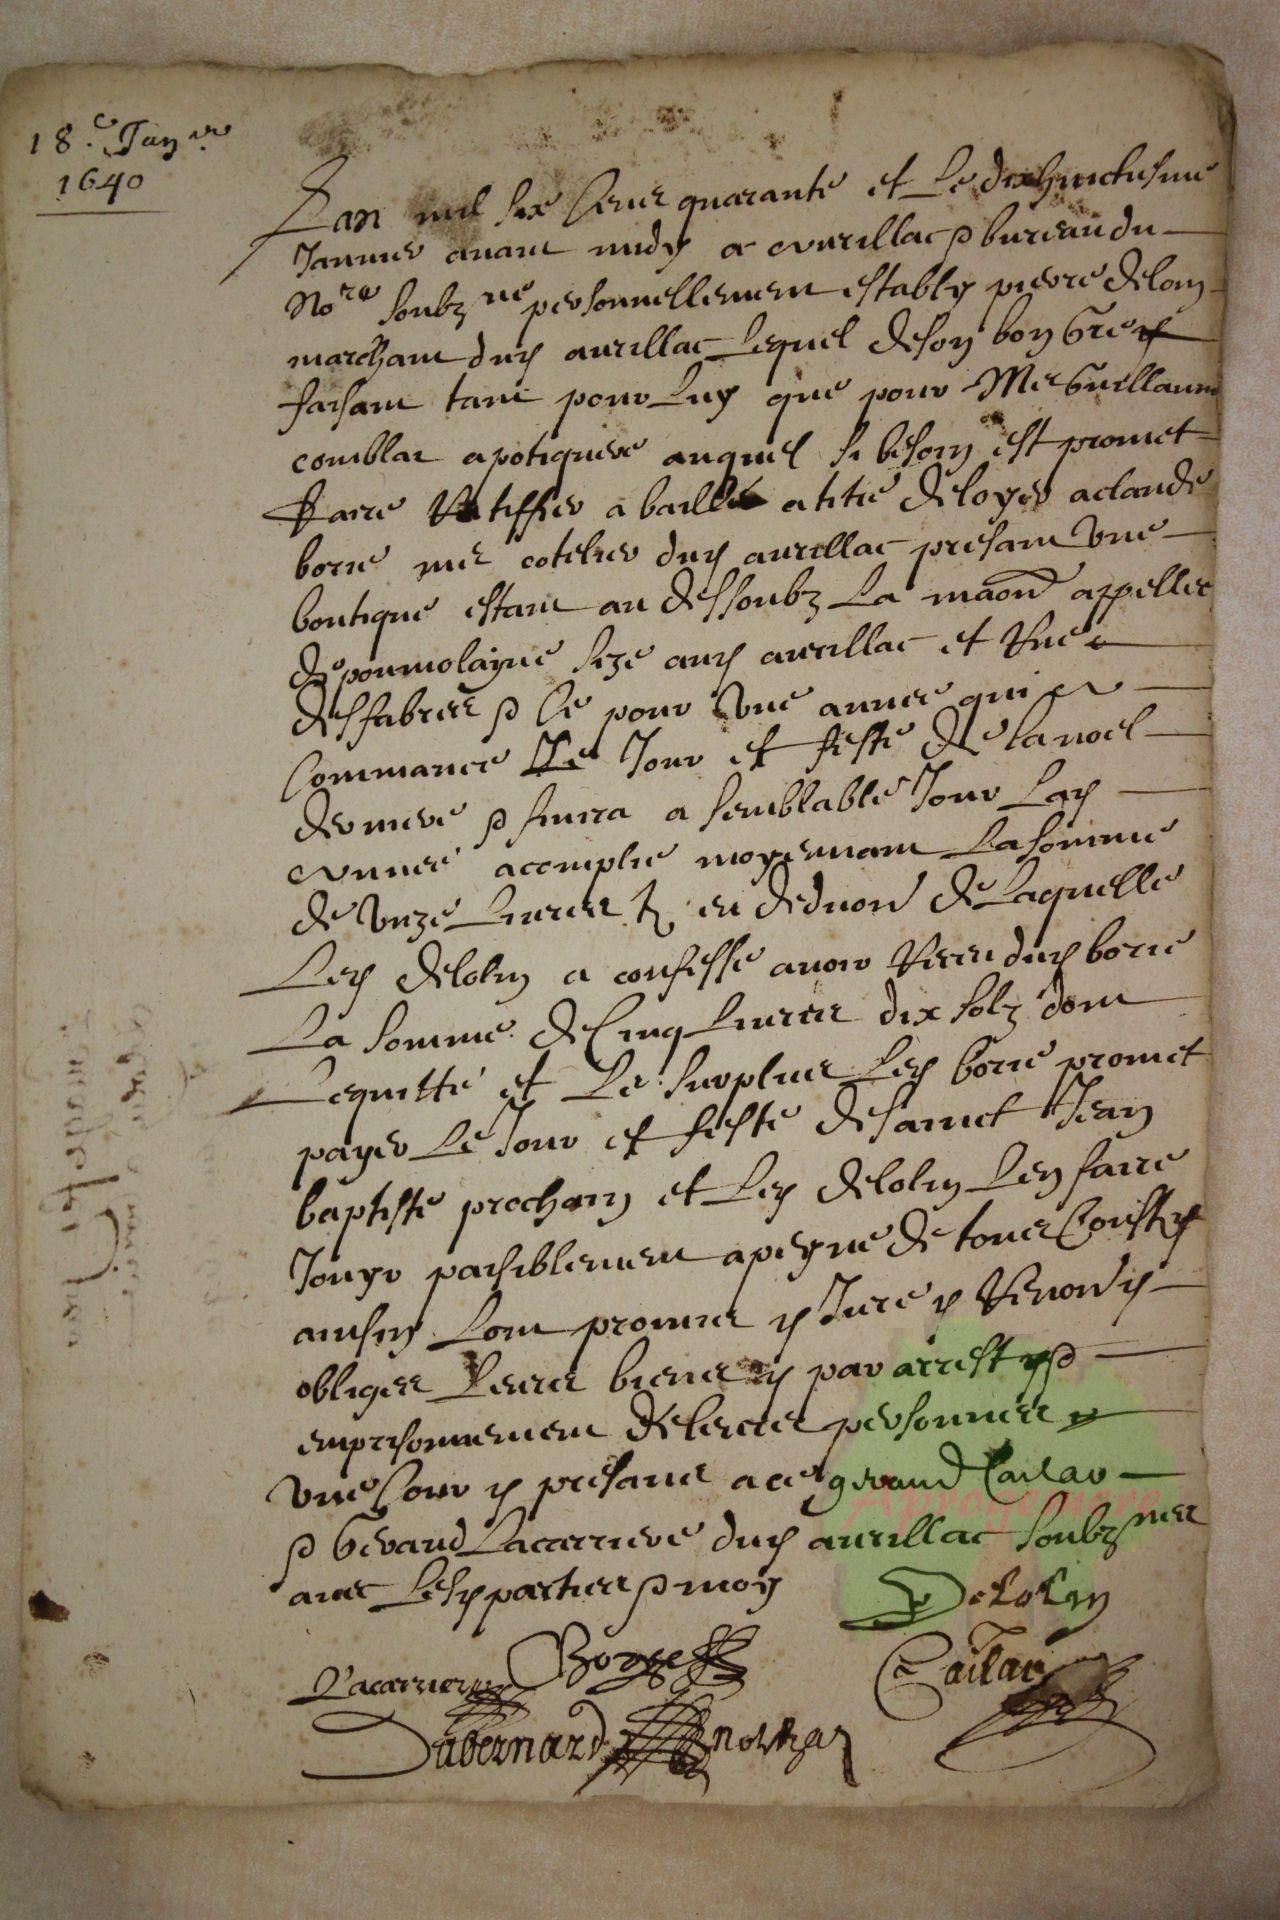 18.e Janv.er
1640
Lan mil six Cens quarante et Le dixhuictiesme
Janvier avant midy a Aurillac & bureau du
No.re soubz.né personnellement estably pierre delom
marchant dud aurillac Lequel de son bon Gre et
faisant tant pour Luy que pour Me Guillaume
comblat apotiquere auquel si besoin est promet
faire Ratiffier a baillé a titre de loyer a claude
borie me cotelier dud aurillac presant Une
boutique estant au dessoubz La maon appellee
de poumolayrie size aud aurillac et Rue
des fabres & Ce pour Une annee qui a
Commance Le Jour et feste de la noel
derniere & finira a semblable Jour Lad
Annee acomplie moyennant La somme
de Unze Livres tz en deduon de Laquelle
Led delolm a confesse avoir Receu dud borie
La somme de Cinq Livres dix solz dont
Lequitte et Le surplus Led borie promet
payer Le Jour et feste de sainct Jean
baptiste prochain et Led delolm Len faire
Jouyr paisiblement a peyne de tous Coustz
ainsin Lont promis & Jure & Renon &
obliges Leurs biens & par arrest &
emprisonnement de leurs personnes
Une Cour & presans a ce geraud Cailar
& Geraud Lacarriere dud aurillac soubz.nes
avec Lesd parties & moy
Delolm
Lacarriere Borye Cailar
Dabernard